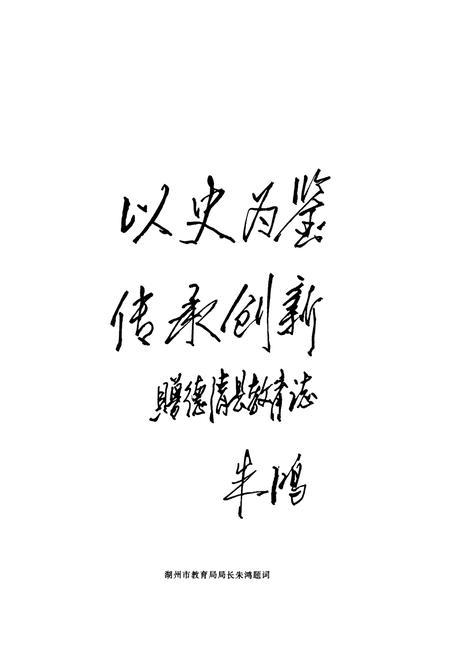 以史为鉴
传承创新
贈德清县教育誌
朱鸿
湖州市教育局局长朱鸿题词